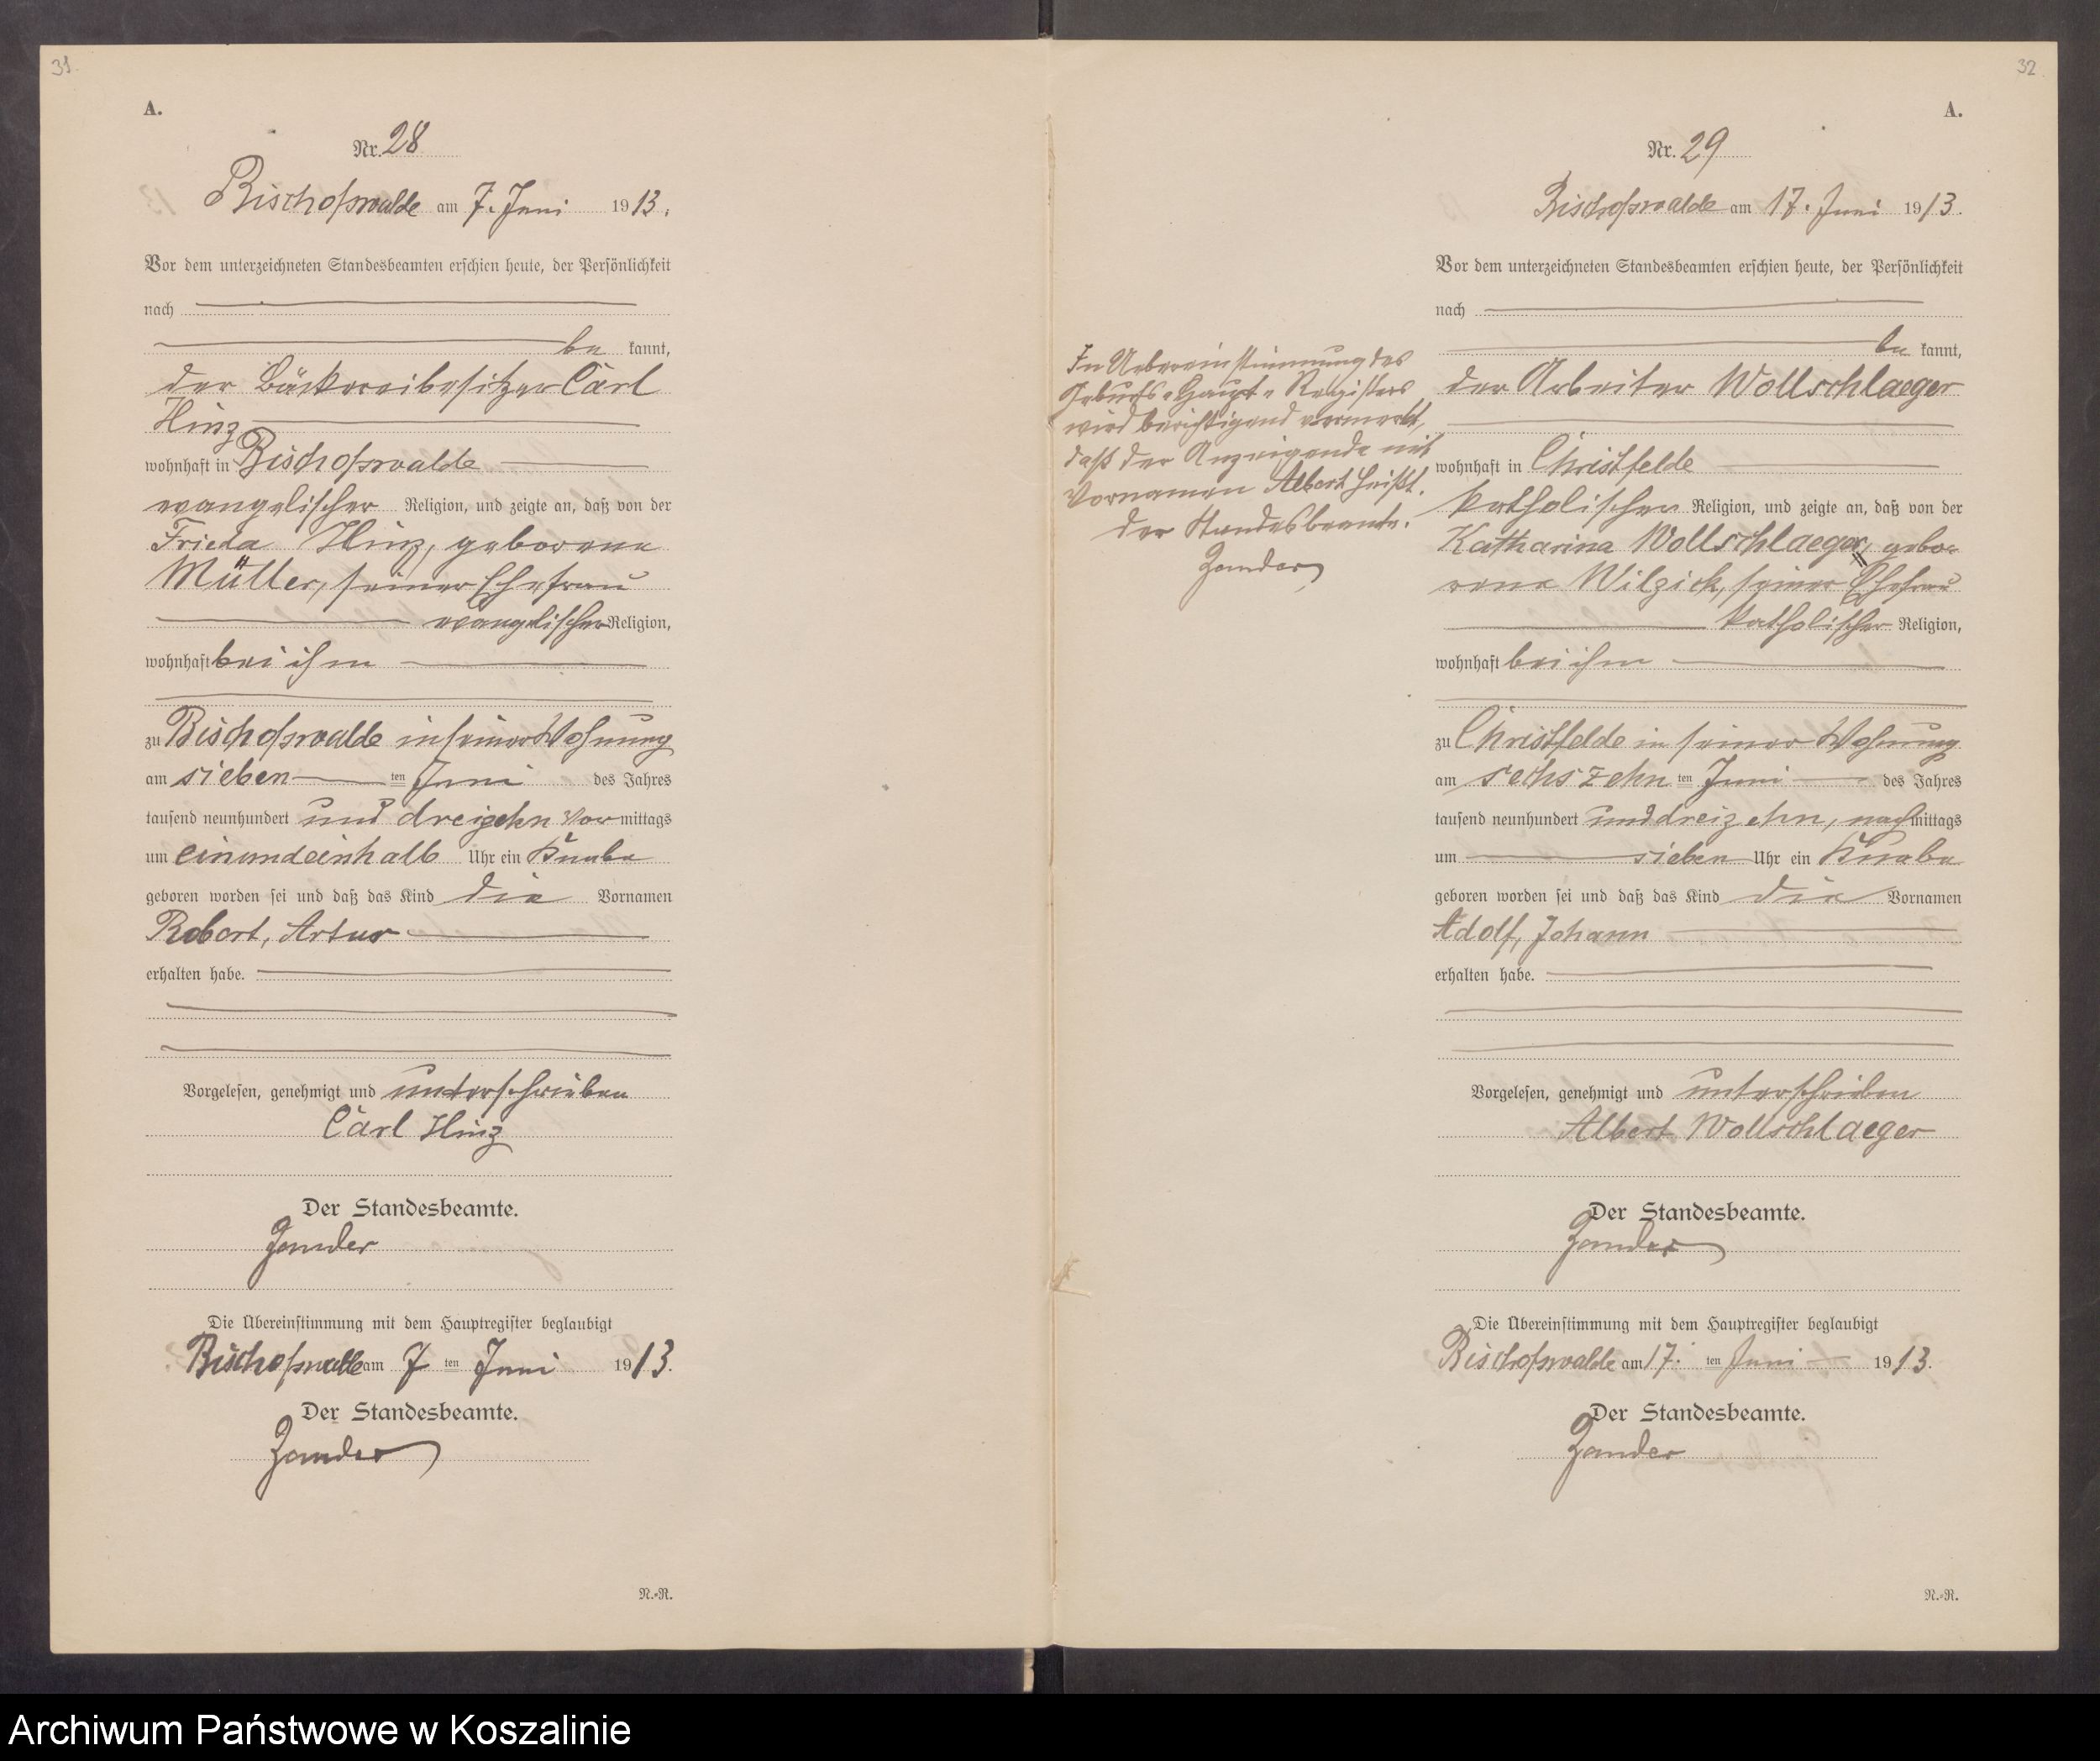 31.
A.
Nr. 28
Bischofswalde am 7. Juni 1913.
Vor dem unterzeichneten Standesbeamten erschien heute, der Persönlichkeit
nach
be kannt,
der Bäckereibesitzer Carl
Hinz
wohnhaft in Bischofswalde
evangelischer Religion, und zeigte an, daß von der
Frieda Hinz, geborene
Müller, seiner Ehefrau
evangelischer Religion,
wohnhaft bei ihm
zu Bischofswalde in seiner Wohnung
am sieben ten Juni des Jahres
tausend neunhundert und dreizehn Vor mittags
um einundeinhalb Uhr ein Knabe
geboren worden sei und daß das Kind die Vornamen
Robert, Artur
erhalten habe.
Vorgelesen, genehmigt und unterschrieben
Carl Hinz
Der Standesbeamte.
Zander
Die Übereinstimmung mit dem Hauptregister beglaubigt
Bischofswalde am 7 ten Juni 1913.
Der Standesbeamte.
Zander
N.-R.
32.
A.
Nr. 29
Bischofswalde am 17. Juni 1913.
Vor dem unterzeichneten Standesbeamten erschien heute, der Persönlichkeit
nach
be kannt,
der Arbeiter Wollschlaeger
wohnhaft in Christfelde
katholischer Religion, und zeigte an, daß von der
Katharina Wollschlaeger, gebo=
rene Wilzick, seiner Ehefrau
katholischer Religion,
wohnhaft bei ihm
zu Christfelde in seiner Wohnung
am sechszehn ten Juni des Jahres
tausend neunhundert und dreizehn, nach mittags
um sieben Uhr ein Knabe
geboren worden sei und daß das Kind die Vornamen
Adolf, Johann
erhalten habe.
Vorgelesen, genehmigt und unterschrieben
Albert Wollschlaeger
Der Standesbeamte.
Zander
Die Übereinstimmung mit dem Hauptregister beglaubigt
Bischofswalde am 17. ten Juni 1913.
Der Standesbeamte.
Zander
N.-R.
In Uebereinstimmung des
Geburts=Haupt=Registers
wird berichtigend vermerkt,
daß der Anzeigende mit
Vornamen Albert heißt.
Der Standesbeamte.
Zander
Archiwum Państwowe w Koszalinie